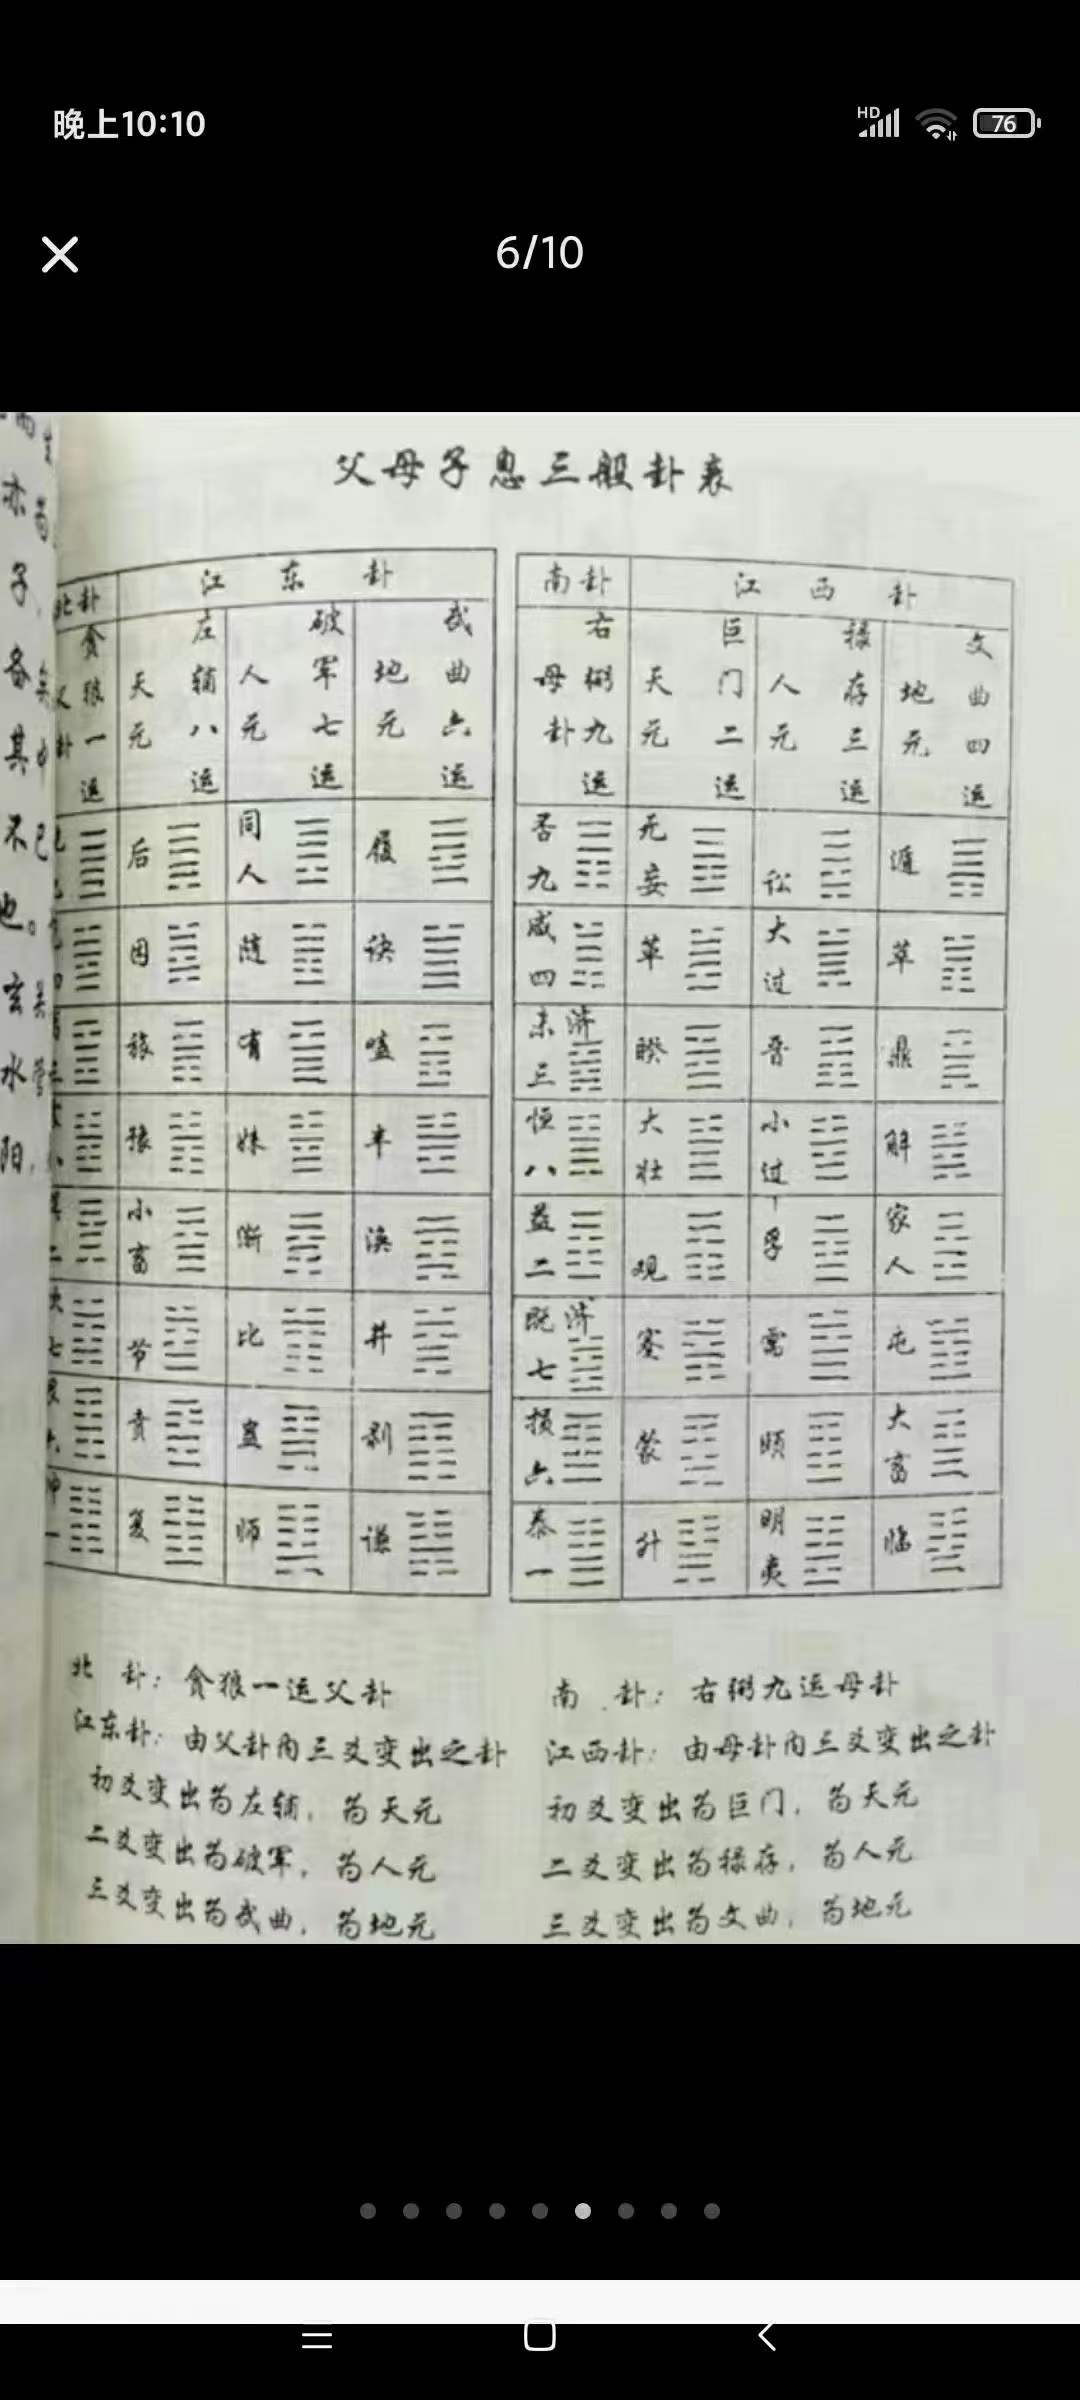 晚上10:10
HD
76
6/10
父母子息三般卦表
北卦 江东卦 南卦 江西卦
贪狼一运 左辅八运 天元 破军七运 人元 武曲六运 地元 右弼九运 母卦 巨门二运 天元 禄存三运 人元 文曲四运 地元
后 同人 履 否九 无妄 讼 遁
困 随 诀 咸四 革 大过 萃
旅 有 嗑 未济三 睽 晋 鼎
豫 妹 丰 恒八 大壮 小过 解
小畜 渐 涣 益二 观 孚 家人
节 比 井 既济七 蹇 需 屯
贲 蛊 剥 损六 蒙 颐 大畜
复 师 谦 泰一 升 明夷 临
北卦：贪狼一运父卦
江东卦：由父卦内三爻变出之卦
初爻变出为左辅，为天元
二爻变出为破军，为人元
三爻变出为武曲，为地元
南卦：右弼九运母卦
江西卦：由母卦内三爻变出之卦
初爻变出为巨门，为天元
二爻变出为禄存，为人元
三爻变出为文曲，为地元